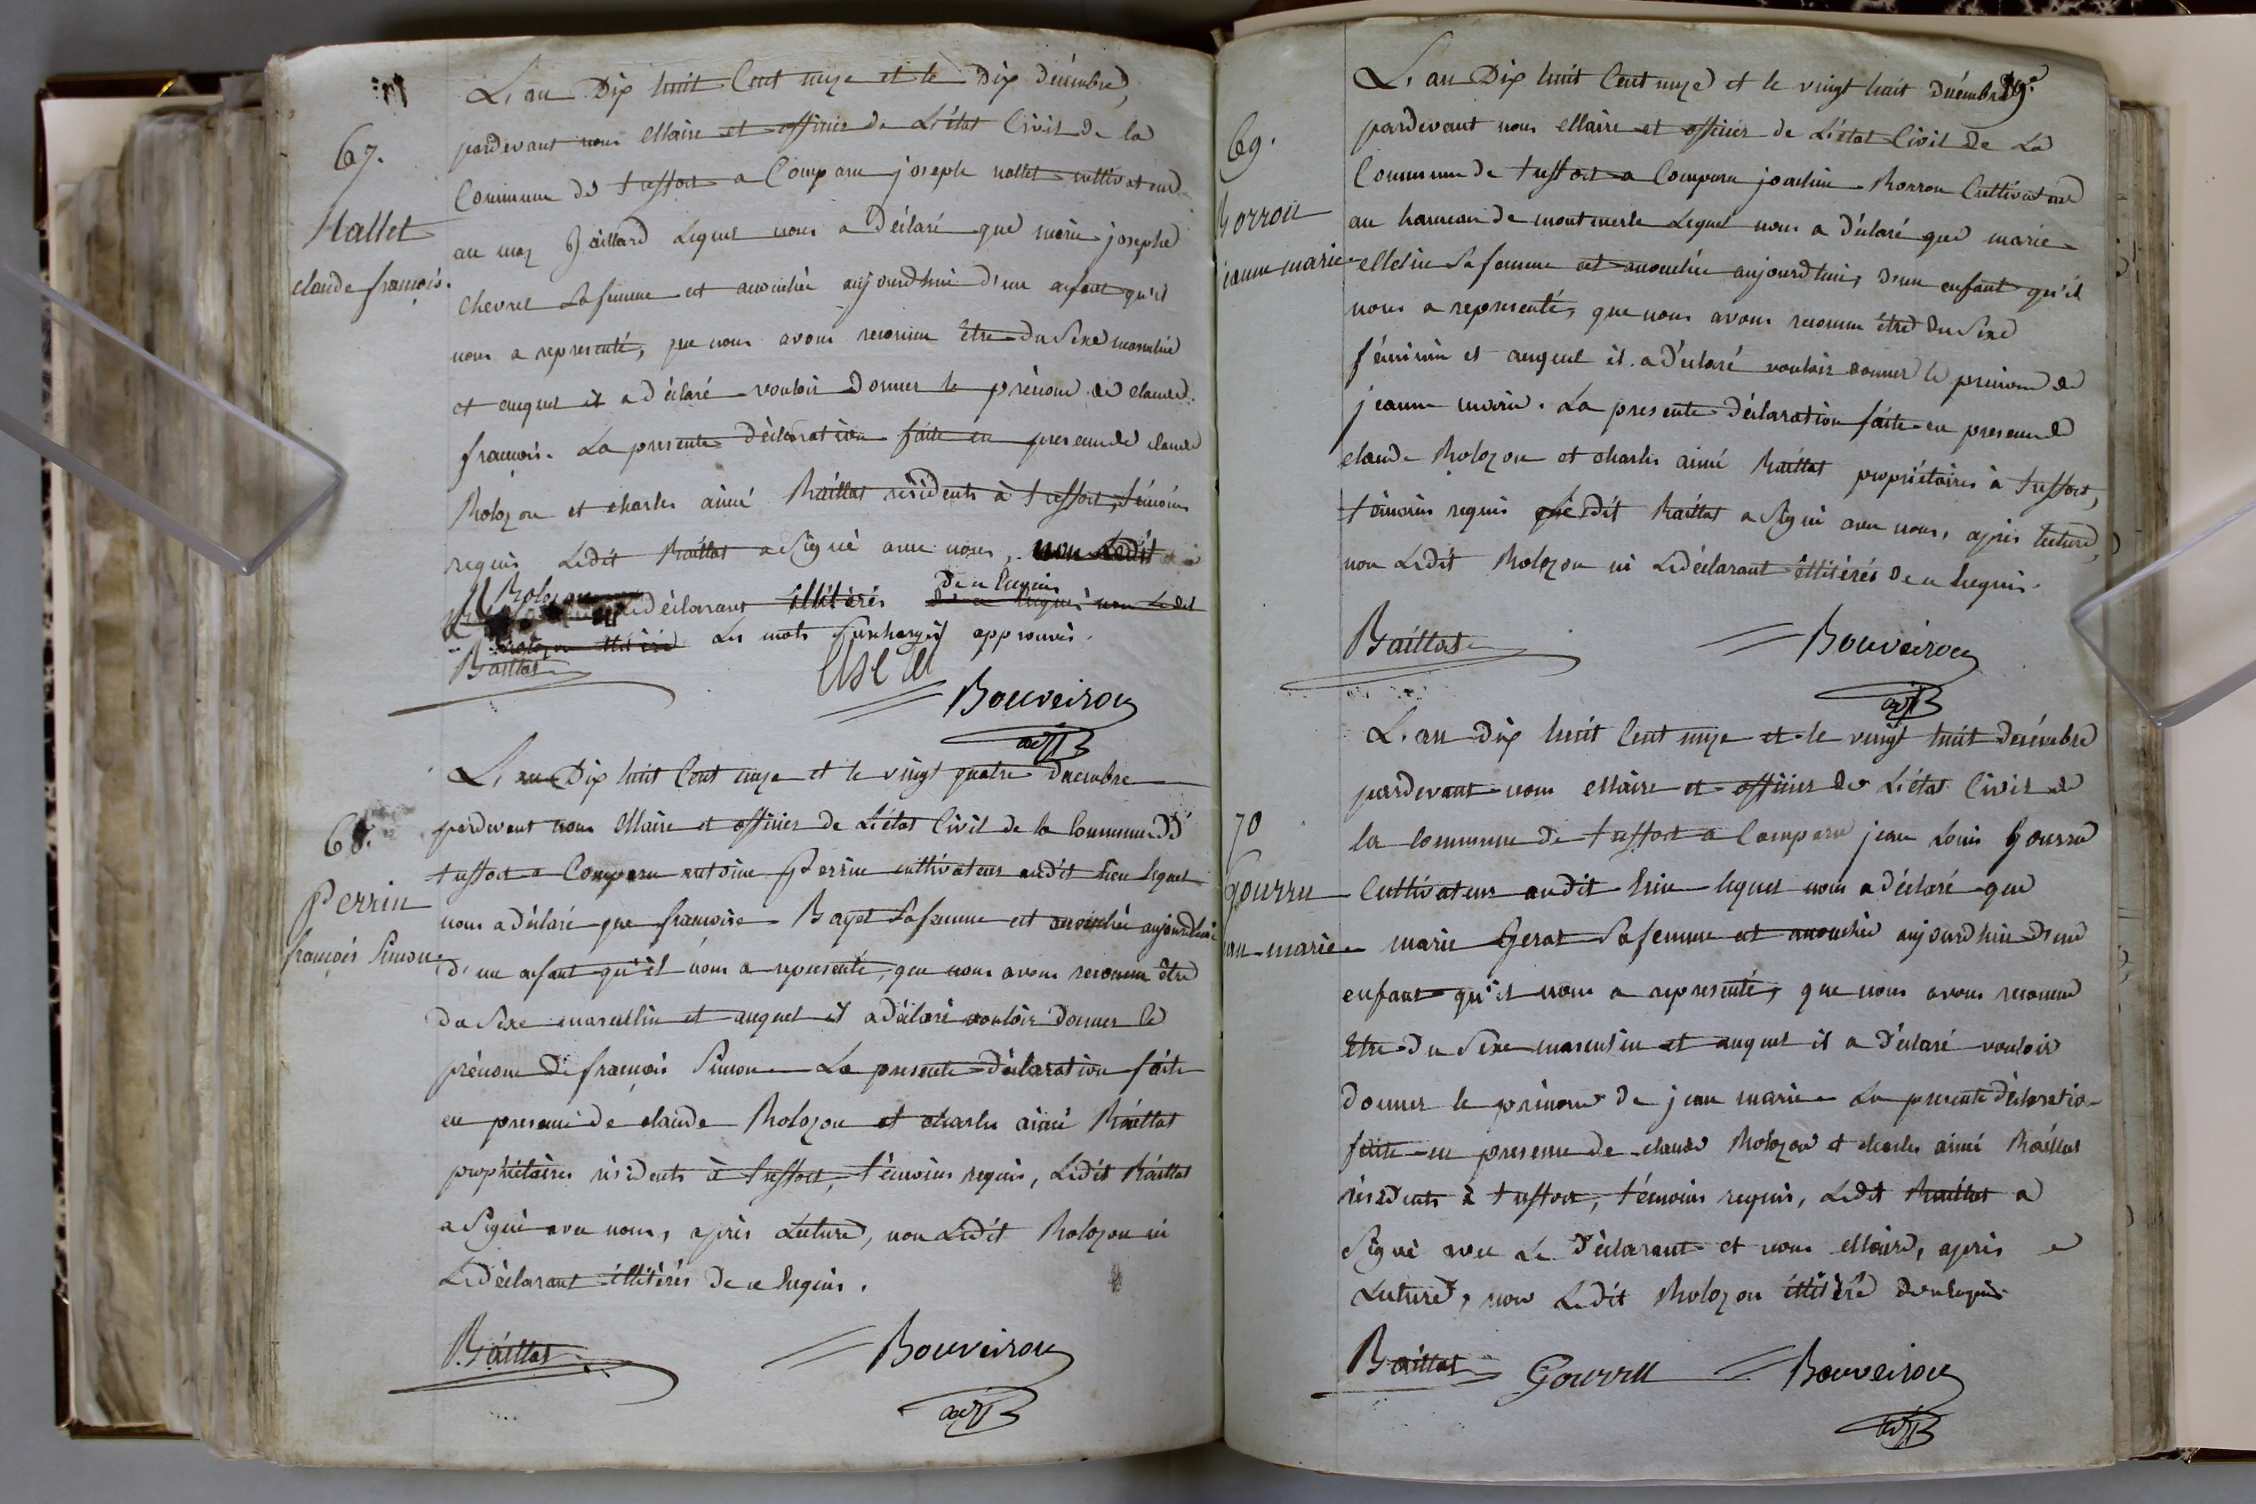 67.
Nallet
claude françois.
L'an Dix huit Cent onze et le Dix décembre,
pardevant nous Maire et officier de L'état Civil de la
Commune de treffort a Comparu joseph nallet cultivateur
au maz Gaillard Lequel nous a Déclaré que marie josephe
Chevrel Sa femme est accouchée aujourdhui d'un enfant qu'il
nous a représenté, que nous avons reconnu être du Sexe masculin
et auquel il a déclaré vouloir Donner le prénom de claude
françois. La presente Déclaration faite en presence de claude
Rolozon et charles aimé Baillat résidents à treffort, témoins
requis Ledit Baillat a Signé avec nous, non Ledit
Rolozon déclarant illitérés De ce Enquis
Les mots Surchargés approuvés.
Baillat
Bouveirou
68.
Perrin
françois Simon
L'an Dix huit Cent onze et le vingt quatre Decembre
pardevant nous Maire et officier de L'état Civil de la Commune de
treffort a Comparu antoine Perrin cultivateur audit lieu lequel
nous a déclaré que francoise Bayet Sa femme est accouchée aujourdhui
d'un enfant qu'il nous a représenté, que nous avons reconnu être
du Sexe masculin et auquel il a déclaré vouloir donner le
prénom de françois Simon La presente Déclaration faite
en presence de claude Rolozon et charles aimé Baillat
propriétaires résidents à treffort, témoins requis, Ledit Baillat
a Signé avec nous, après Lecture, non Ledit Rolozon ni
Le déclarant illitérés De ce Enquis.
Baillat
Bouveirou
69.
jeanne marie
L'an Dix huit Cent onze et le vingt huit décembre
pardevant nous Maire et officier de L'état Civil de La
Commune de treffort a Comparu joachim Cultivateur
au hameau de montmerle Lequel nous a déclaré que marie
Sa femme est accouchée aujourdhui, D'un enfant qu'il
nous a representé, que nous avons reconnu être du Sexe
féminin et auquel il a déclaré vouloir donner le prénom de
jeanne marie. La presente Déclaration faite en presence de
claude Rolozon et charles aimé Baillat propriétaires à treffort,
témoins requis Ledit Baillat a Signé avec nous, après lecture,
non Ledit Rolozon ni Le déclarant illitérés De ce Enquis.
Baillat
Bouveirou
70
Gourru
jean-marie
L'an dix huit Cent onze et le vingt huit decembre
pardevant nous Maire et officier de L'état Civil de
la Commune de treffort a Comparu jean Louis Gourru
Cultivateur audit lieu lequel nous a déclaré que
marie Geras Sa femme est accouchée aujourdhui D'un
enfant qu'il nous a representé, que nous avons reconnu
être du Sexe masculin et auquel il a déclaré vouloir
donner le prénom de jean marie La presente Déclaration
faite en presence de claude Rolozon et charles aimé Baillat
résidents à treffort, témoins requis, Ledit Baillat a
Signé avec Le Déclarant et nous Maire, après
Lecture, non Ledit Rolozon illitéré de ce Enquis
Baillat Gourru Bouveirou